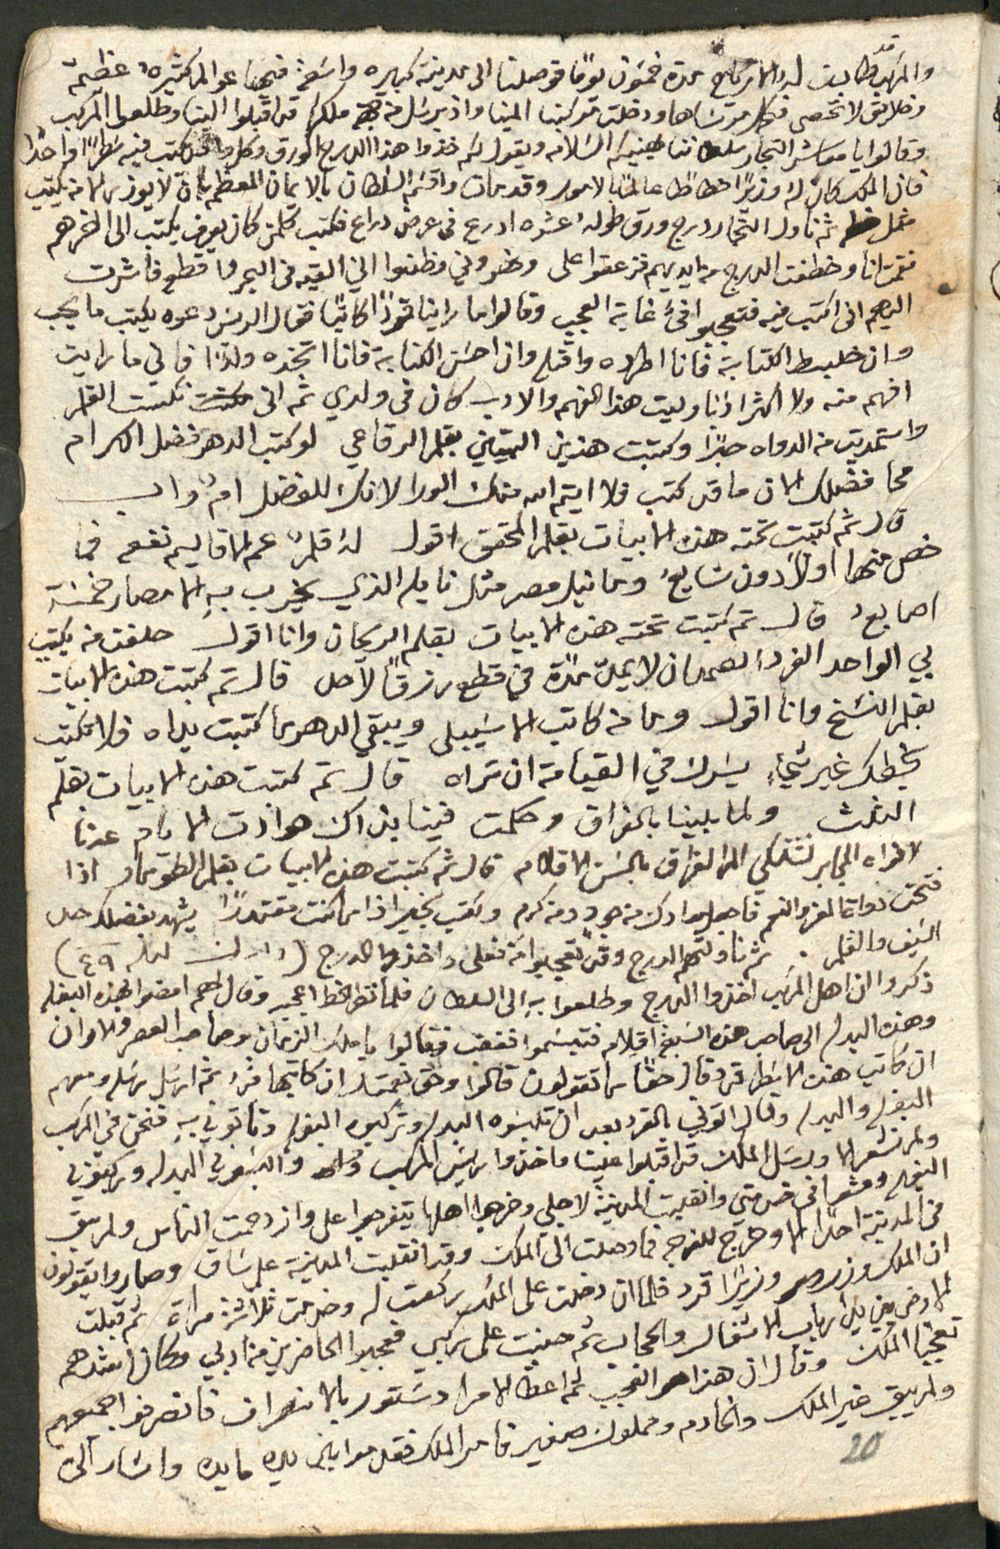 والمركب قد طابت لهم الارياح مدة خمسون يومًا فوصلنا الى مدينة كبيره واسعة فيها عوالم كثيره عظيمة
وخلايق لا تحصى ودخلت مركبنا المينا واذ برسل من ملكها قد اقبلوا الينا وطلعوا المركب
وقالوا يا معاشر التجار سلطاننا يهنيكم السلامه ويقول لكم خذوا هذا الدرج الورق وكل منكم يكتب فيه سطرًا واحدًا
فان الملك كان له وزيرًا خطاطًا عالمًا بالامور وقد مات واقسم السلطان بالايمان المعظمه بانه لا يوزر الا من يكتب
مثل خطه ثم ناول التجار درج ورق طوله عشره ادرع في عرض دراع فكتب كلمن كان يعرف يكتب الى اخرهم
فقمت انا وخطفت الدرج من ايديهم فزعقوا علي ونهروني وظنوا اني القيه في البحر او اقطعه فاشرت
اليهم اني اكتب فيه فتعجبوا في غاية العجب وقالوا ما راينا قردًا كاتبًا فقال الريس دعوه يكتب ما يحب
وان خلبط الكتابة فانا اطرده واقتله وان احسن الكتابة فانا اتخذه ولدًا فاني ما رايت
افهم منه ولا اكثر ادبًا وليت هذا الفهم والادب كان في ولدي ثم اني مسكت القلم
واستمديت من الدواه حبرًا وكتبت هذين البيتين بقلم الرقاعي لو كتب الدهر فضل الكرام
محا فضلك الان ما قد كتب فلا ايتم الله منك الورا لانك للفضل ام واب
قال ثم كتبت تحته هذه الابيات بقلم المحقق اقول له قلم عم الاقاليم نفعه فما
خص منها اولًا دون شايع وما نيل مصر مثل نايله الذي يخرب به الامصار خمسة
اصابع قال ثم كتبت تحته هذه الابيات بقلم الريحان وانا اقول حلفت من يكتب
بي الواحد الفرد الصمد ان لا يمد مدة في قطع رزقًا لاحد قال ثم كتبت هذه الابيات
بقلم النسخ وانا اقول وما من كاتب الا سيبلى ويبقي الدهر ما كتبت يداه فلا تكتب
بخطك غير شيء يسرك في القيامة ان تراه قال ثم كتبت هذه الابيات بقلم
الثلث ولما بلينا بالفراق وحكمت فينا بذاك حوادث الايام عدنا
لافواه المحابر نشتكي الم الفراق بالسن الاقلام قال ثم كتبت هذه الابيات بقلم الطومار اذا
فتحت دواة العز والنعم فاجعل مدادك من جود ومن كرم واكتب بخير اذا ما كنت مقتدرًا يشهد بفضلك حد
السيف والقلم ثم ناولتهم الدرج وقد تعجبوا من فعلي واخذوا الدرج
ذكروا ان اهل المركب اخذوا الدرج وطلعوا به الى السلطان فلما نظر الخط اعجبه وقال لهم امضوا بهذه البغله
وهذه البدله الى صاحب هذه السبعة اقلام فتبسموا فغضب فقالوا يا ملك الزمان وصاحب العصر والاوان
ان كاتب هذه الاسطر قرد قال حقًا ما تقولون قالوا وحق نعمتك ان كاتبها قرد ثم ارسل رسله ومعهم
البغله والبدله وقال اتوني بالقرد بعد ان تلبسوه البدله وتركبوه البغله وتاتوني به فنحن في المركب
ولم نشعر الا ورسل الملك قد اقبلوا علينا فاخذوا ريس المركب والبسوني البدله وركبوني
البغله ومشوا في خدمتي وانقلبت المدينة لاجلي وخرجوا اهلها يتفرجوا علي وازدحمت الناس ولم يبق
في المدينة احدًا الا وخرج للفرجه فما وصلت الى الملك وقد انقلبت المدينة على ساق وصاروا يقولون
ان الملك وزيره وزيرًا قرد فلما ان دخلت على الملك ركعت له وخدمت ثلاثة مراة ثم قبلت
الارض بين يدي ارباب الاشغال والحجاب ثم جثيت على ركبي فعجبوا الحاضرين من ادبي وكان اشدهم
تعجبًا الملك وقال ان هذا هو العجب ثم اعطا للامرا دستور بالانصراف فانصرفوا اجمعهم
ولم يبق غير الملك والخادم ومملوك صغير فامر الملك فقدموا بين يديه مايده واشار الى
20